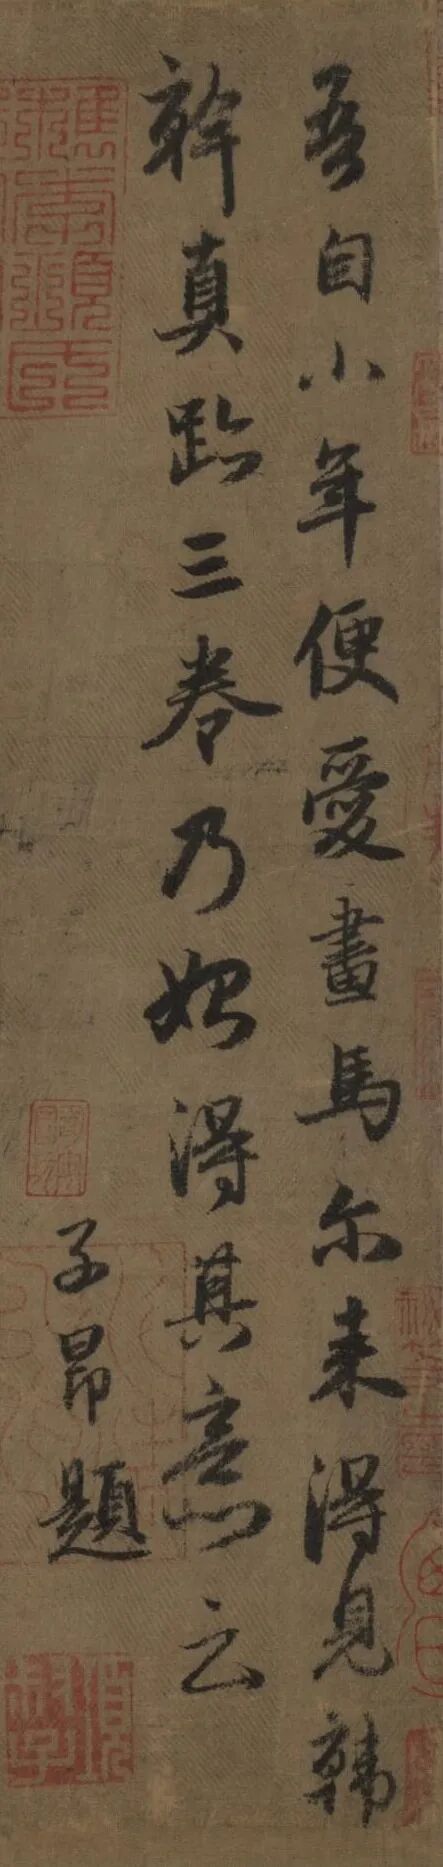 吾自小年便愛畫馬尓来得見韓
幹真跡三卷乃始得其意云
子昂題